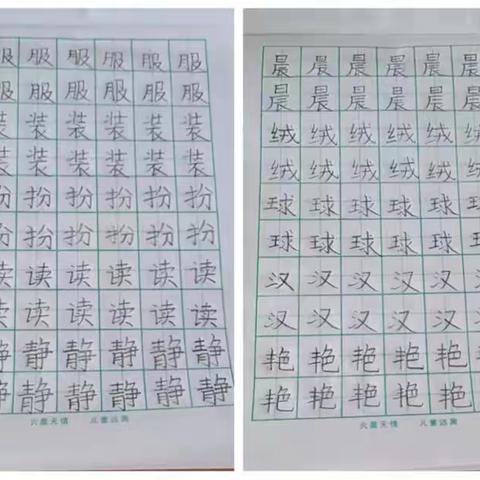 服 服 服 服 服 服
服 服 服 服 服 服
装 装 装 装 装
装 装 装 装 装
扮 扮 扮 扮 扮
扮 扮 扮 扮 扮
读 读 读 读 读
读 读 读 读 读
静 静 静 静 静
静 静 静 静 静
晨 晨 晨 晨 晨 晨
晨 晨 晨 晨 晨 晨
绒 绒 绒 绒 绒 绒
绒 绒 绒 绒 绒 绒
球 球 球 球 球 球
球 球 球 球 球 球
汉 汉 汉 汉 汉 汉
汉 汉 汉 汉 汉 汉
艳 艳 艳 艳 艳 艳
艳 艳 艳 艳 艳 艳